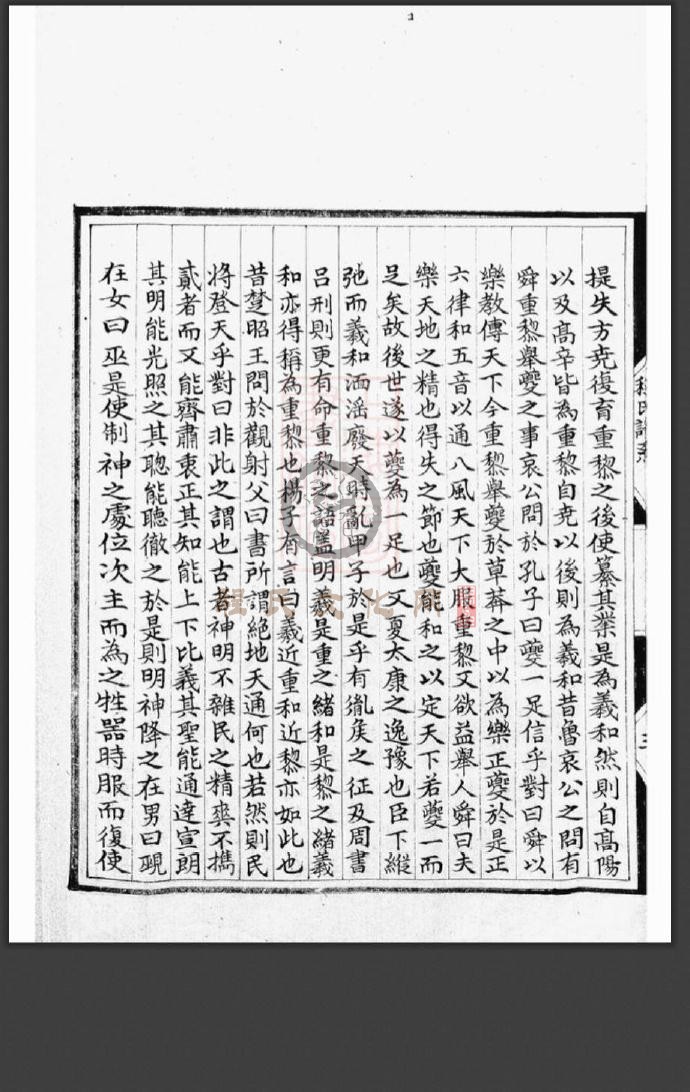 提失方尭復育重黎之後使纂其業是為羲和然則自高陽
以及高辛皆為重黎自尭以後則為羲和昔魯哀公之問有
舜重黎舉夔之事哀公問於孔子曰夔一足信乎對曰舜以
樂教傳天下令重黎舉夔於草莽之中以為樂正夔於是正
六律和五音以通八風天下大服重黎又欲益舉人舜曰夫
樂天地之精也得失之節也夔能和之以定天下若夔一而
足矣故後世遂以夔為一足也又夏太康之逸豫也臣下縱
弛而羲和湎淫廢天時亂甲子於是乎有胤矦之征及周書
呂刑則更有命重黎之語盖明羲是重之緒和是黎之緒羲
和亦得稱為重黎也楊子有言曰羲近重和近黎亦如此也
昔楚昭王問於觀射父曰書所謂絕地天通何也若然則民
将登天乎對曰非此之謂也古者神明不雜民之精爽不擕
貳者而又能齊肅衷正其知能上下比義其聖能通達宣朗
其明能光照之其聰能聽徹之於是則明神降之在男曰覡
在女曰巫是使制神之處位次主而為之牲器時服而復使
程氏譜系
程氏文化庫